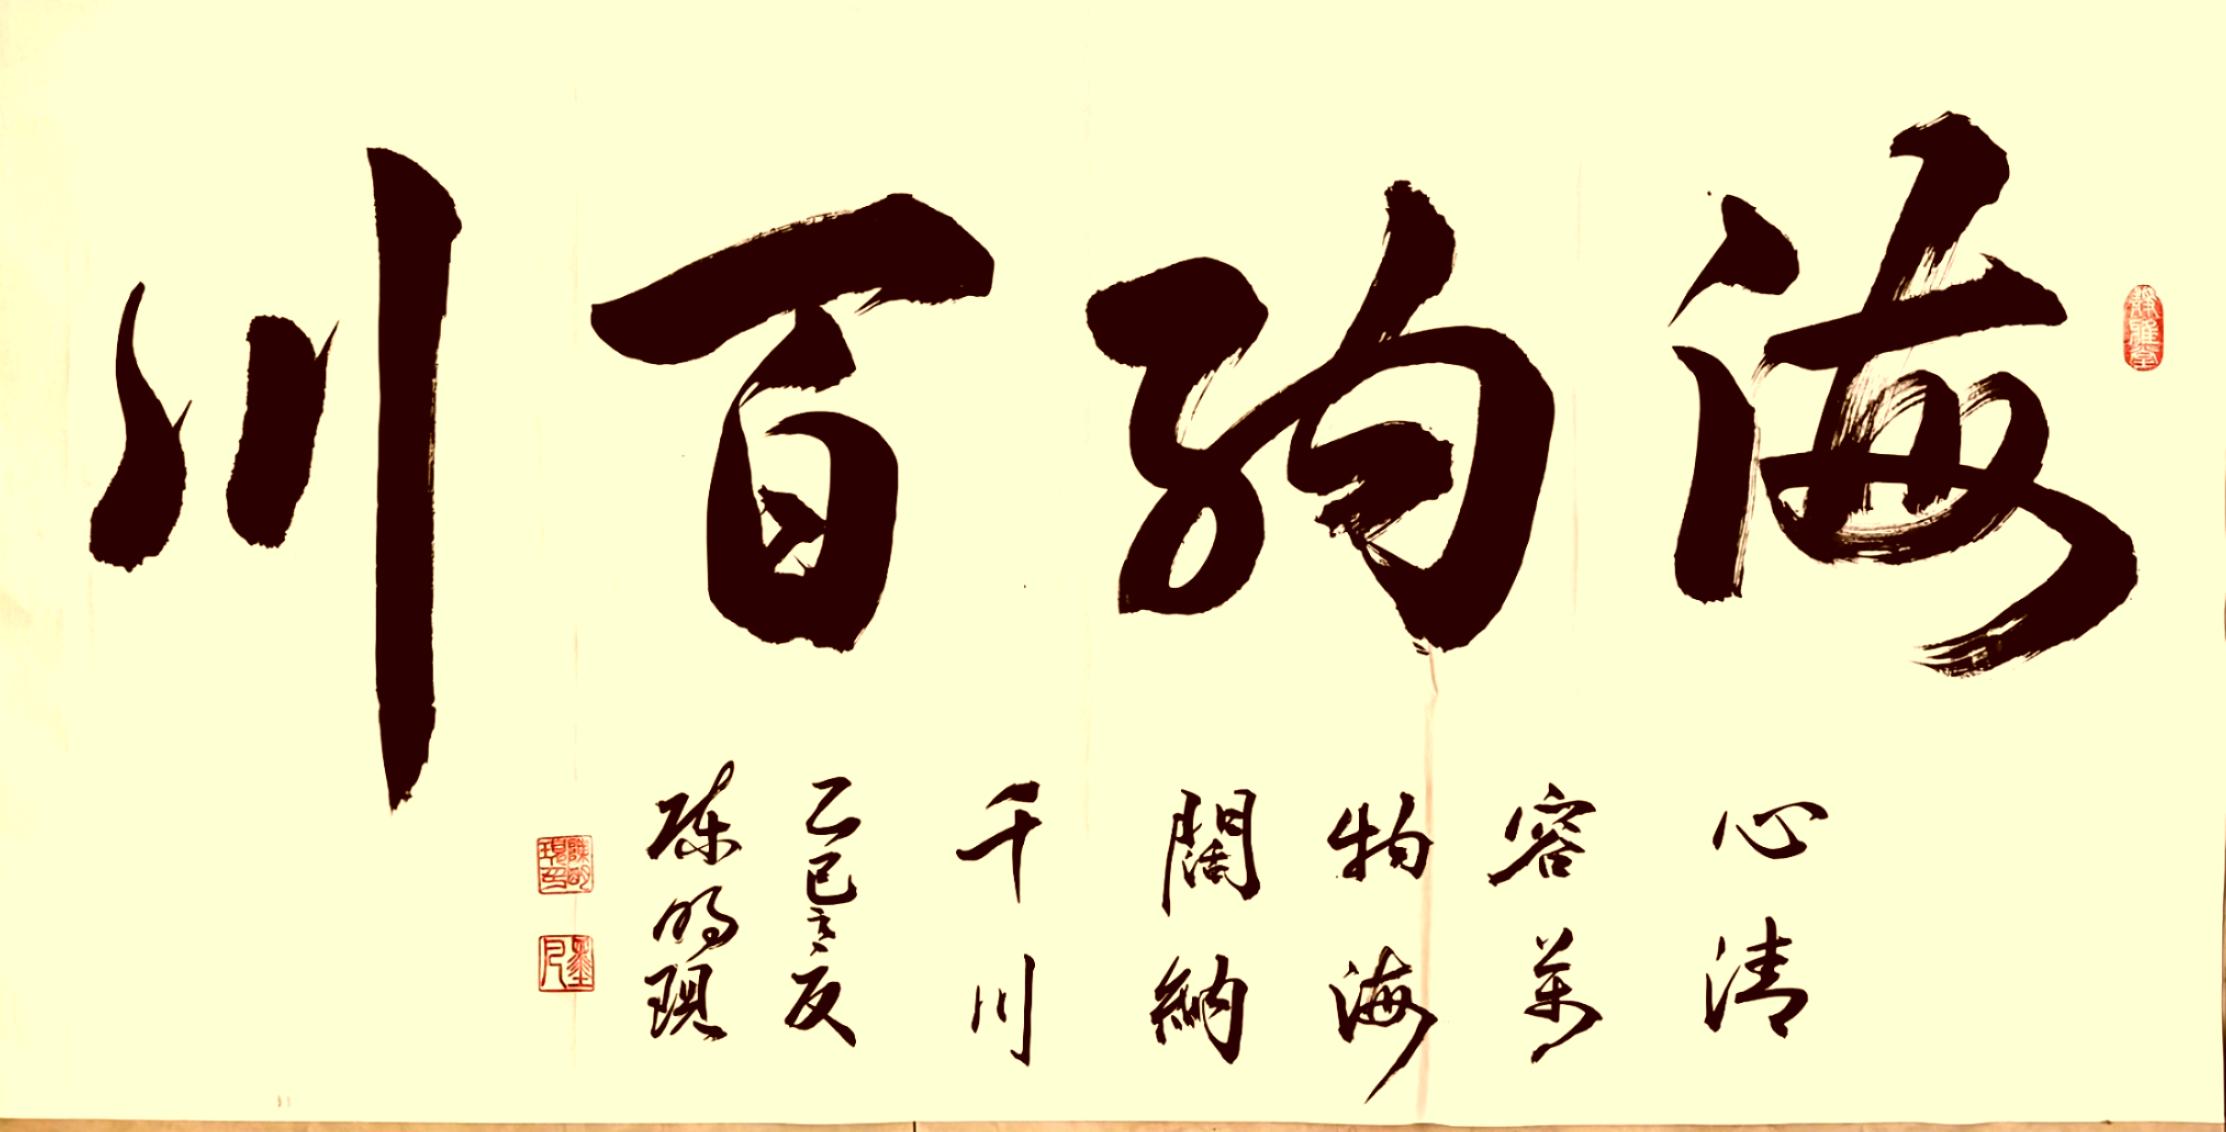 海納百川
心清
容萬
物海
闊納
千川
乙巳之夏
陳明現